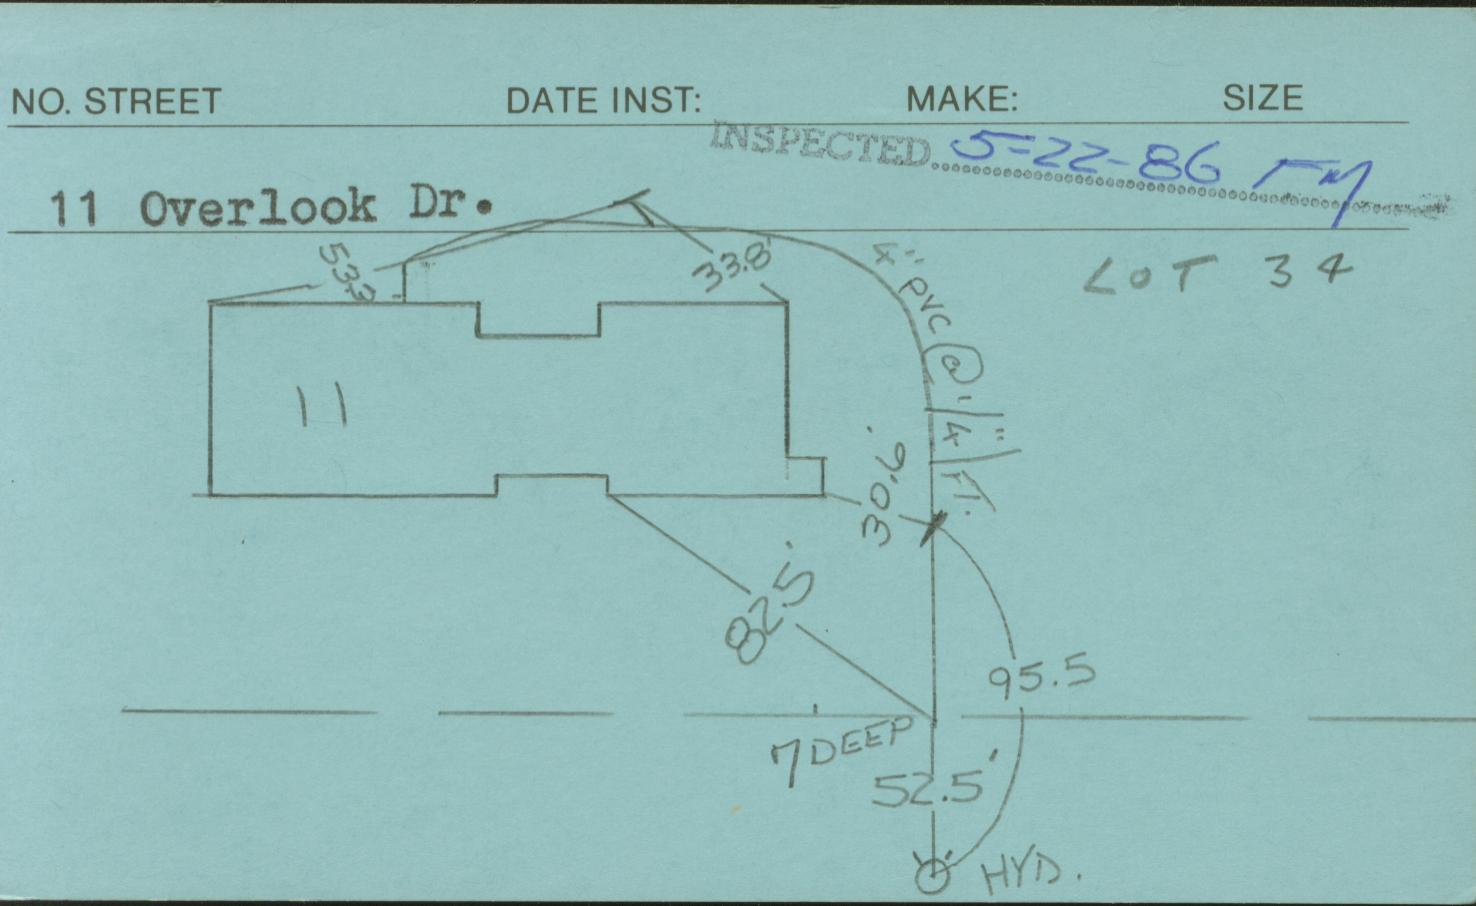 NO. STREET DATE INST: MAKE: SIZE
INSPECTED 5-22-86 FM
11 Overlook Dr.
LOT 34
53.3
33.8'
4" PVC @ 1/4"/FT.
11
30.6'
82.5'
95.5
7' DEEP
52.5'
HYD.